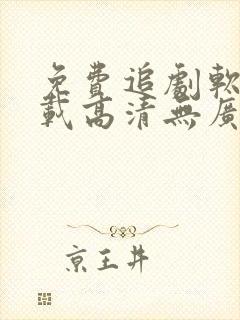 免費追劇軟
載高清無廣
京王井